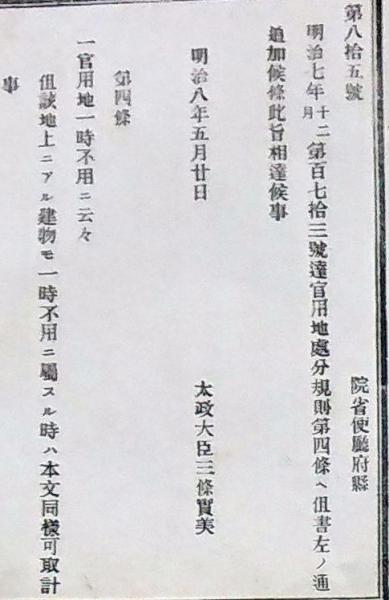 第八拾五號
院省使廳府縣
明治七年十二月第百七拾三號達官用地處分規則第四條ヘ但書左ノ通
追加候條此旨相達候事
明治八年五月廿日
太政大臣三條實美
第四條
一官用地一時不用ニ云々
但該地上ニアル建物モ一時不用ニ屬スル時ハ本文同樣可取計
事